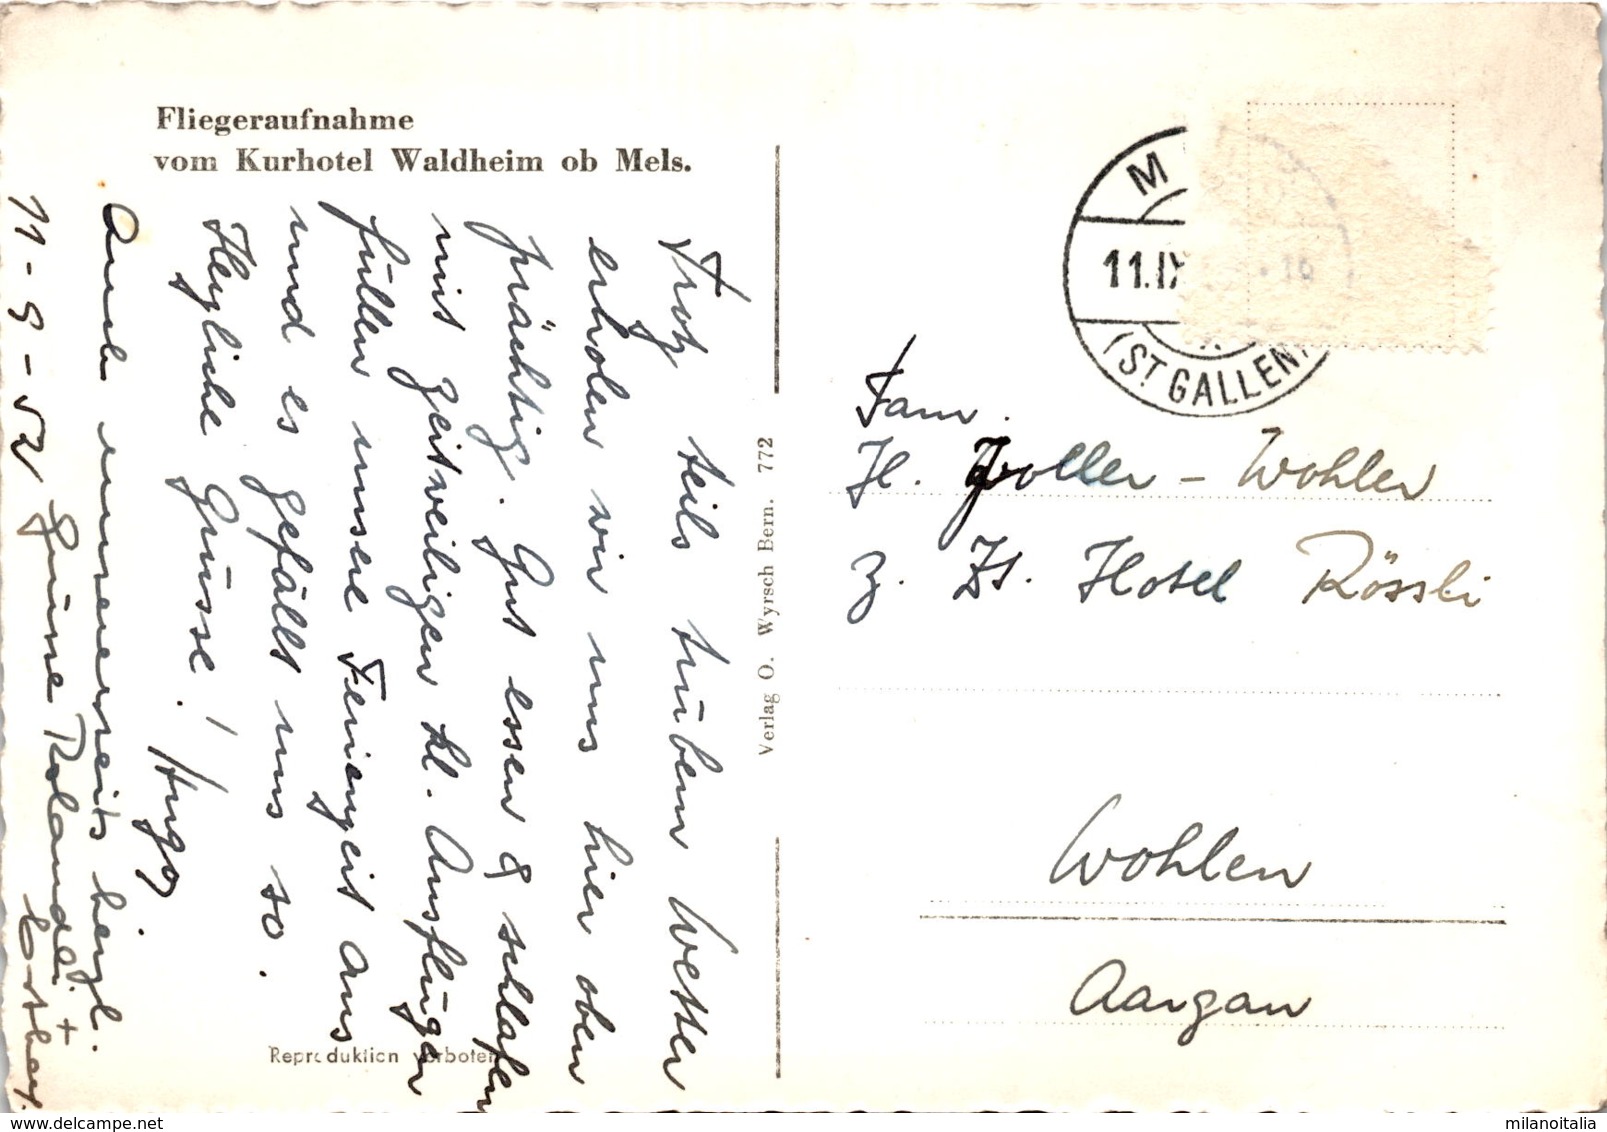 Fliegeraufnahme
vom Kurhotel Waldheim ob Mels.
Trotz teils trübem Wetter
erholen wir uns hier oben
prächtig. Gut essen & schlafen
mit zeitweiligen kl. Ausflügen
füllen unsere Ferienzeit aus
und es gefällt uns so.
Herzliche Grüsse! Hugo
Auch unsererseits herzl.
Grüsse
11-9-52
Reproduktion verboten
Verlag O. Wyrsch Bern. 772
M
11.IX
16
(ST GALLEN)
Fam.
Zoller - Wohler
z. Zt. Hotel Rössli
Wohlen
Aargau
milanoitalia